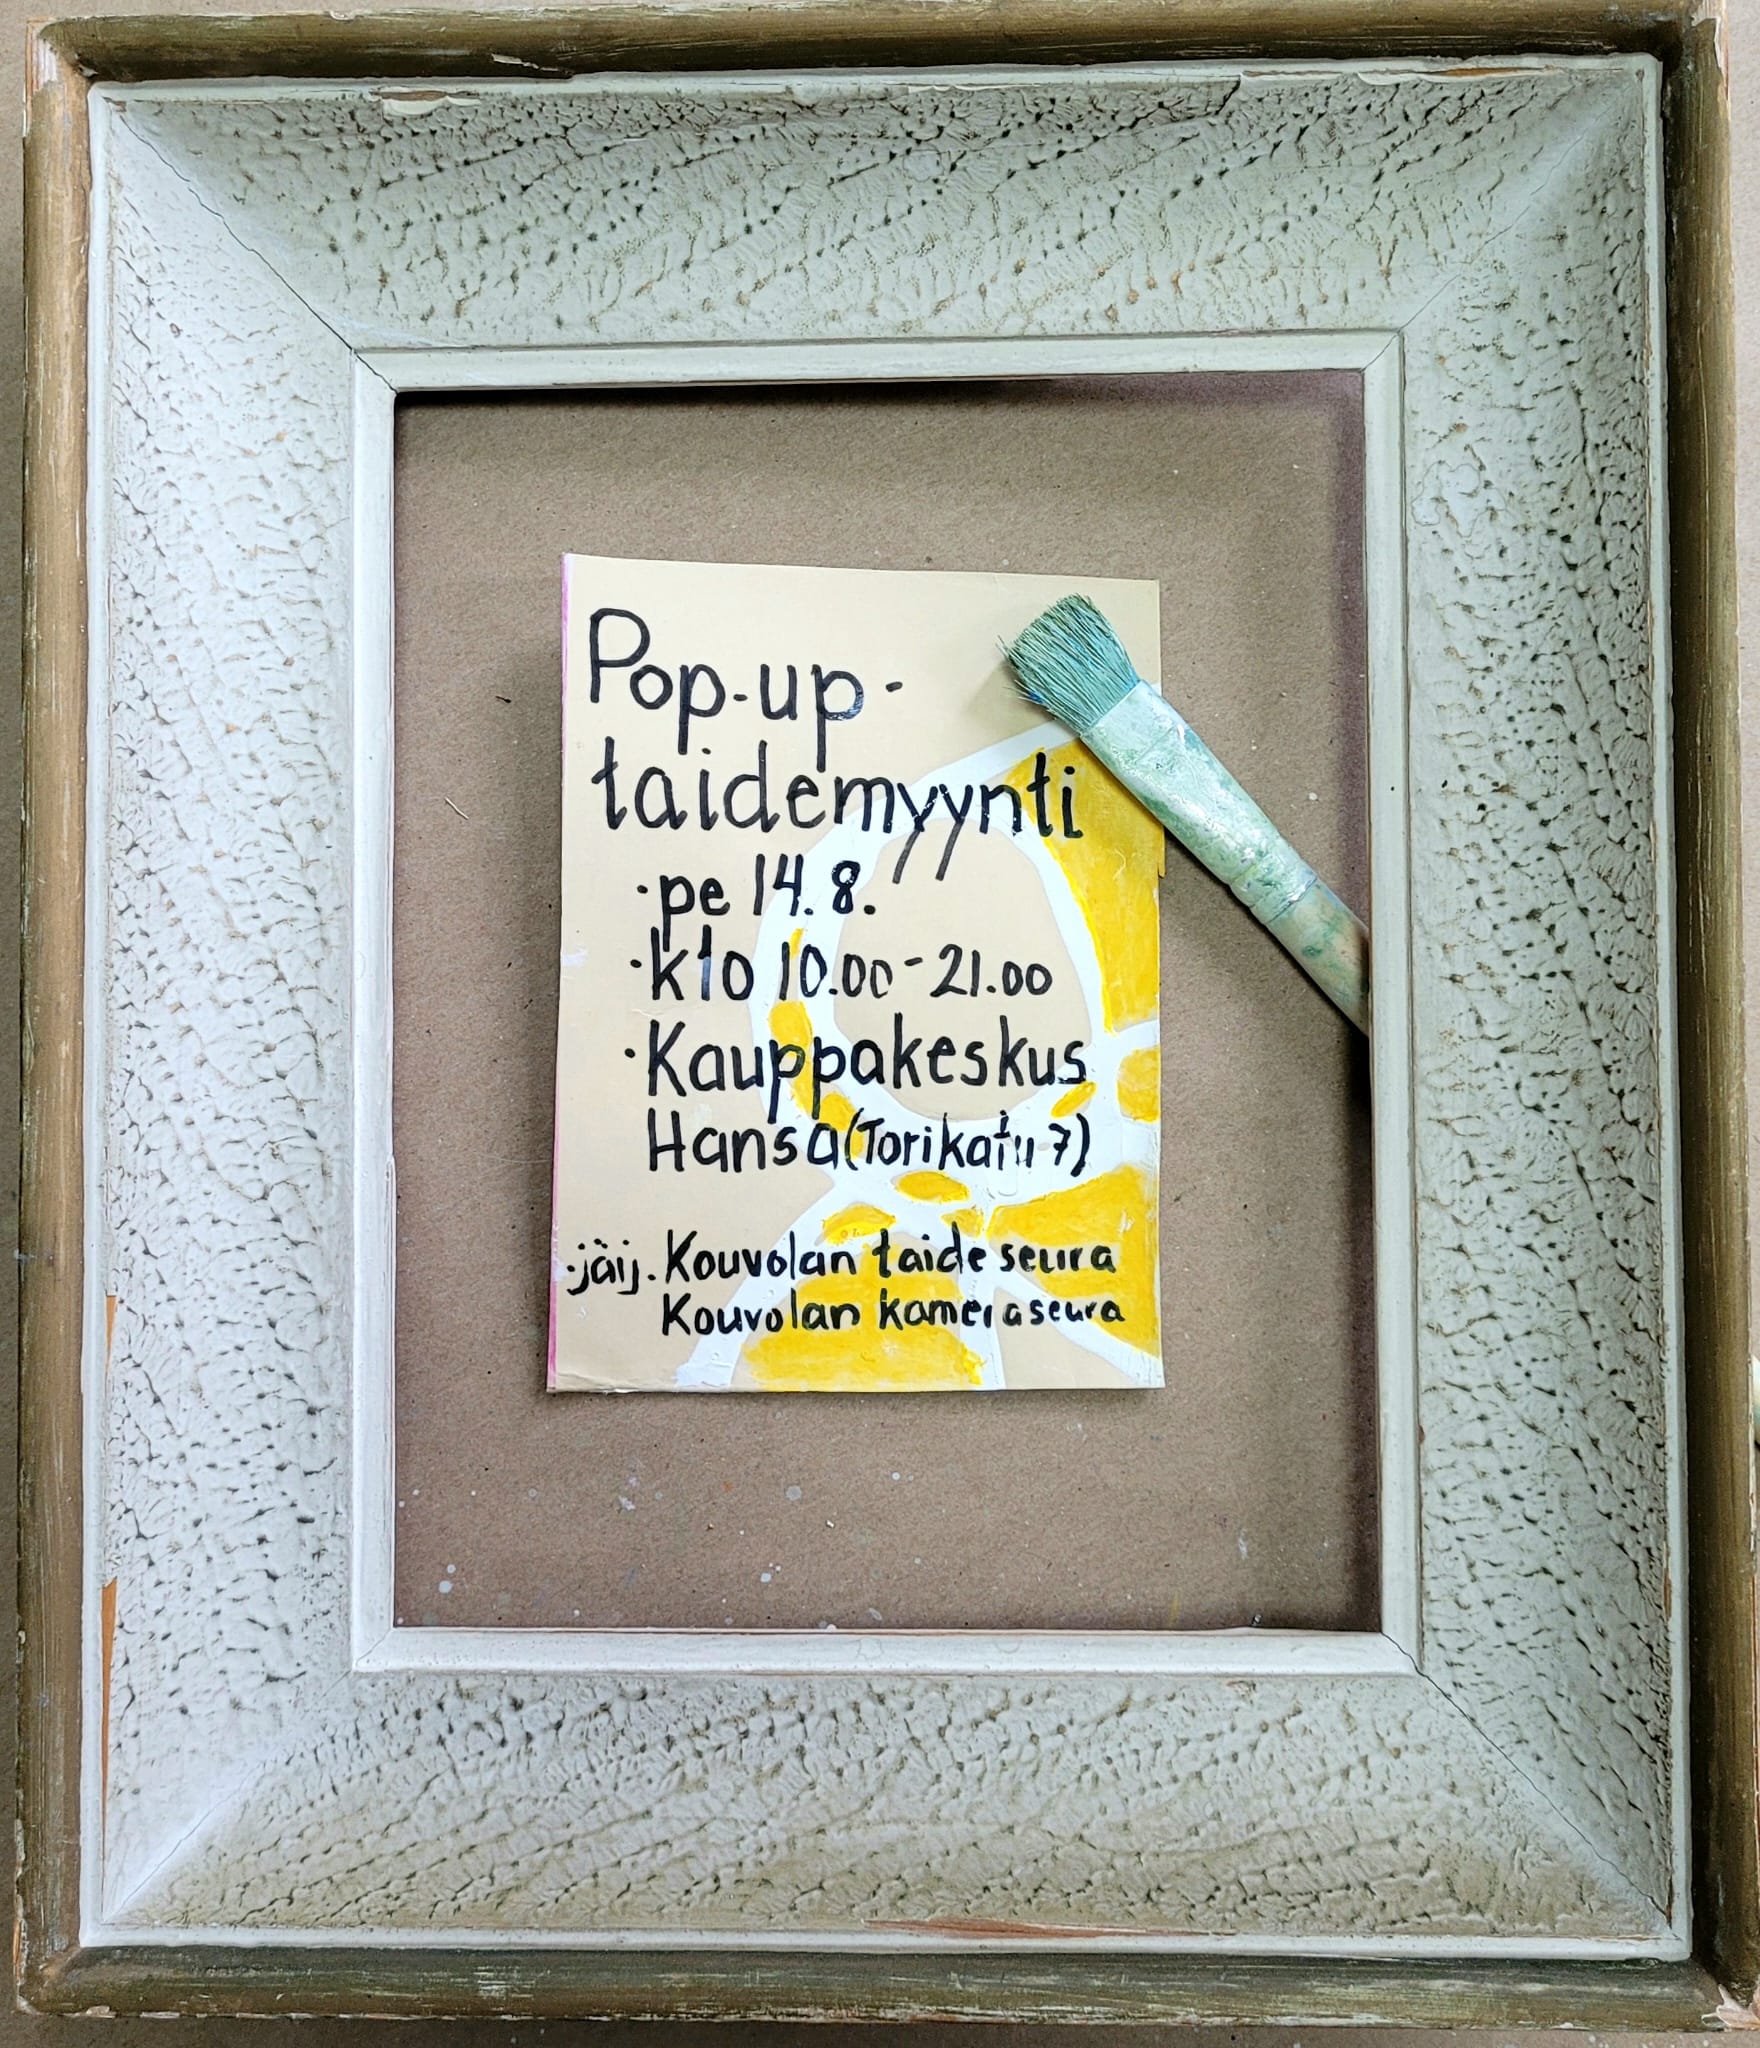 Pop-up-
taidemyynti
·pe 14.8.
·klo 10.00-21.00
·Kauppakeskus
Hansa (Torikatu 7)
·järj. Kouvolan taideseura
Kouvolan kameraseura